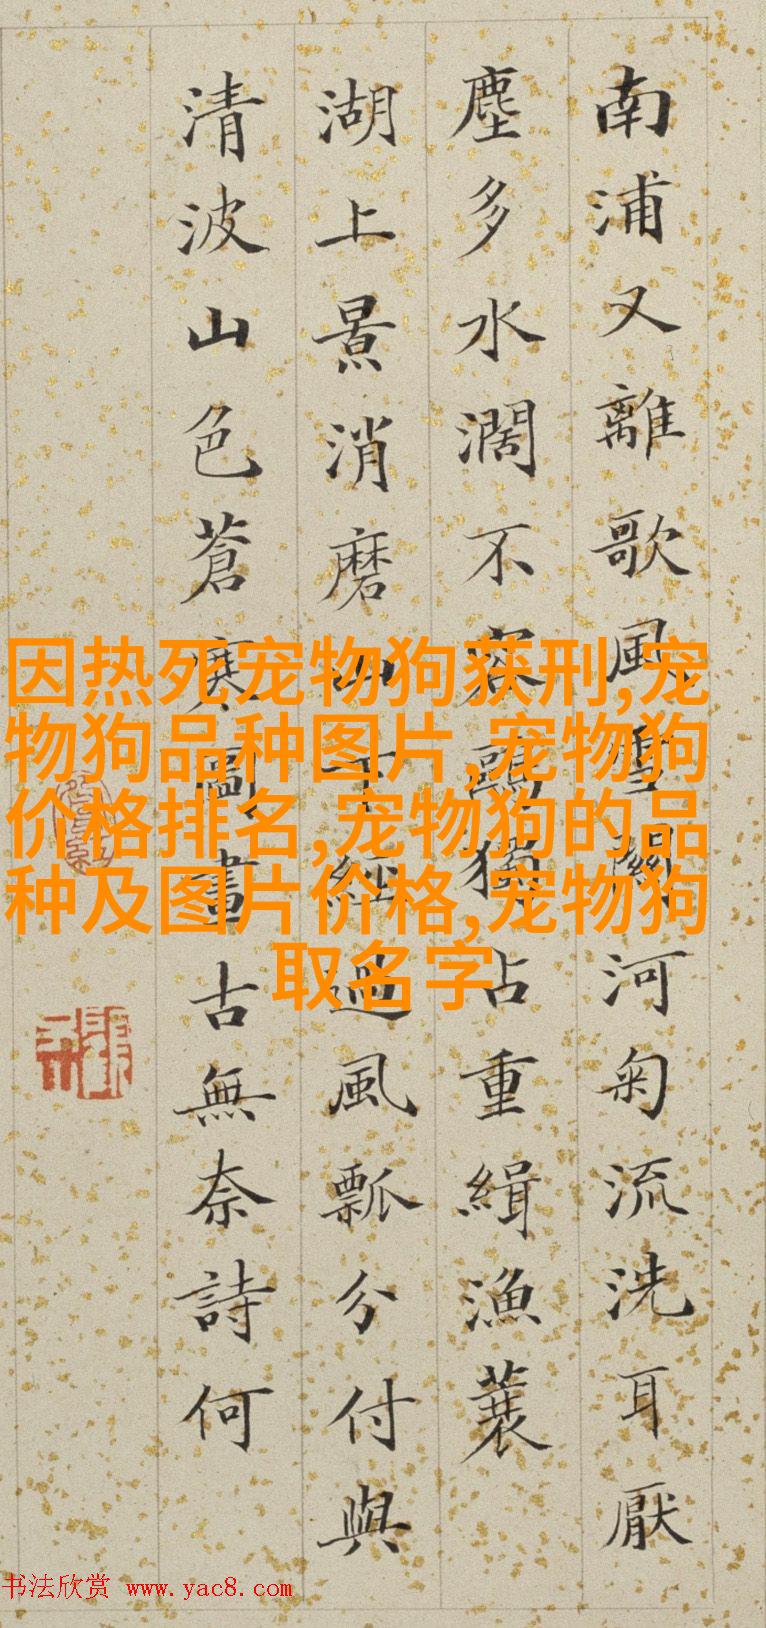 南浦又離歌風雪關河匊流洗耳厭
塵多水濶不容鷗獨占重緝漁蓑
湖上景消磨山下經過風瓢分付與
清波山色蒼寒圖畫古無奈詩何
因热死宠物狗获刑,宠
物狗品种图片,宠物狗
价格排名,宠物狗的品
种及图片价格,宠物狗
取名字
书法欣赏 www.yac8.com